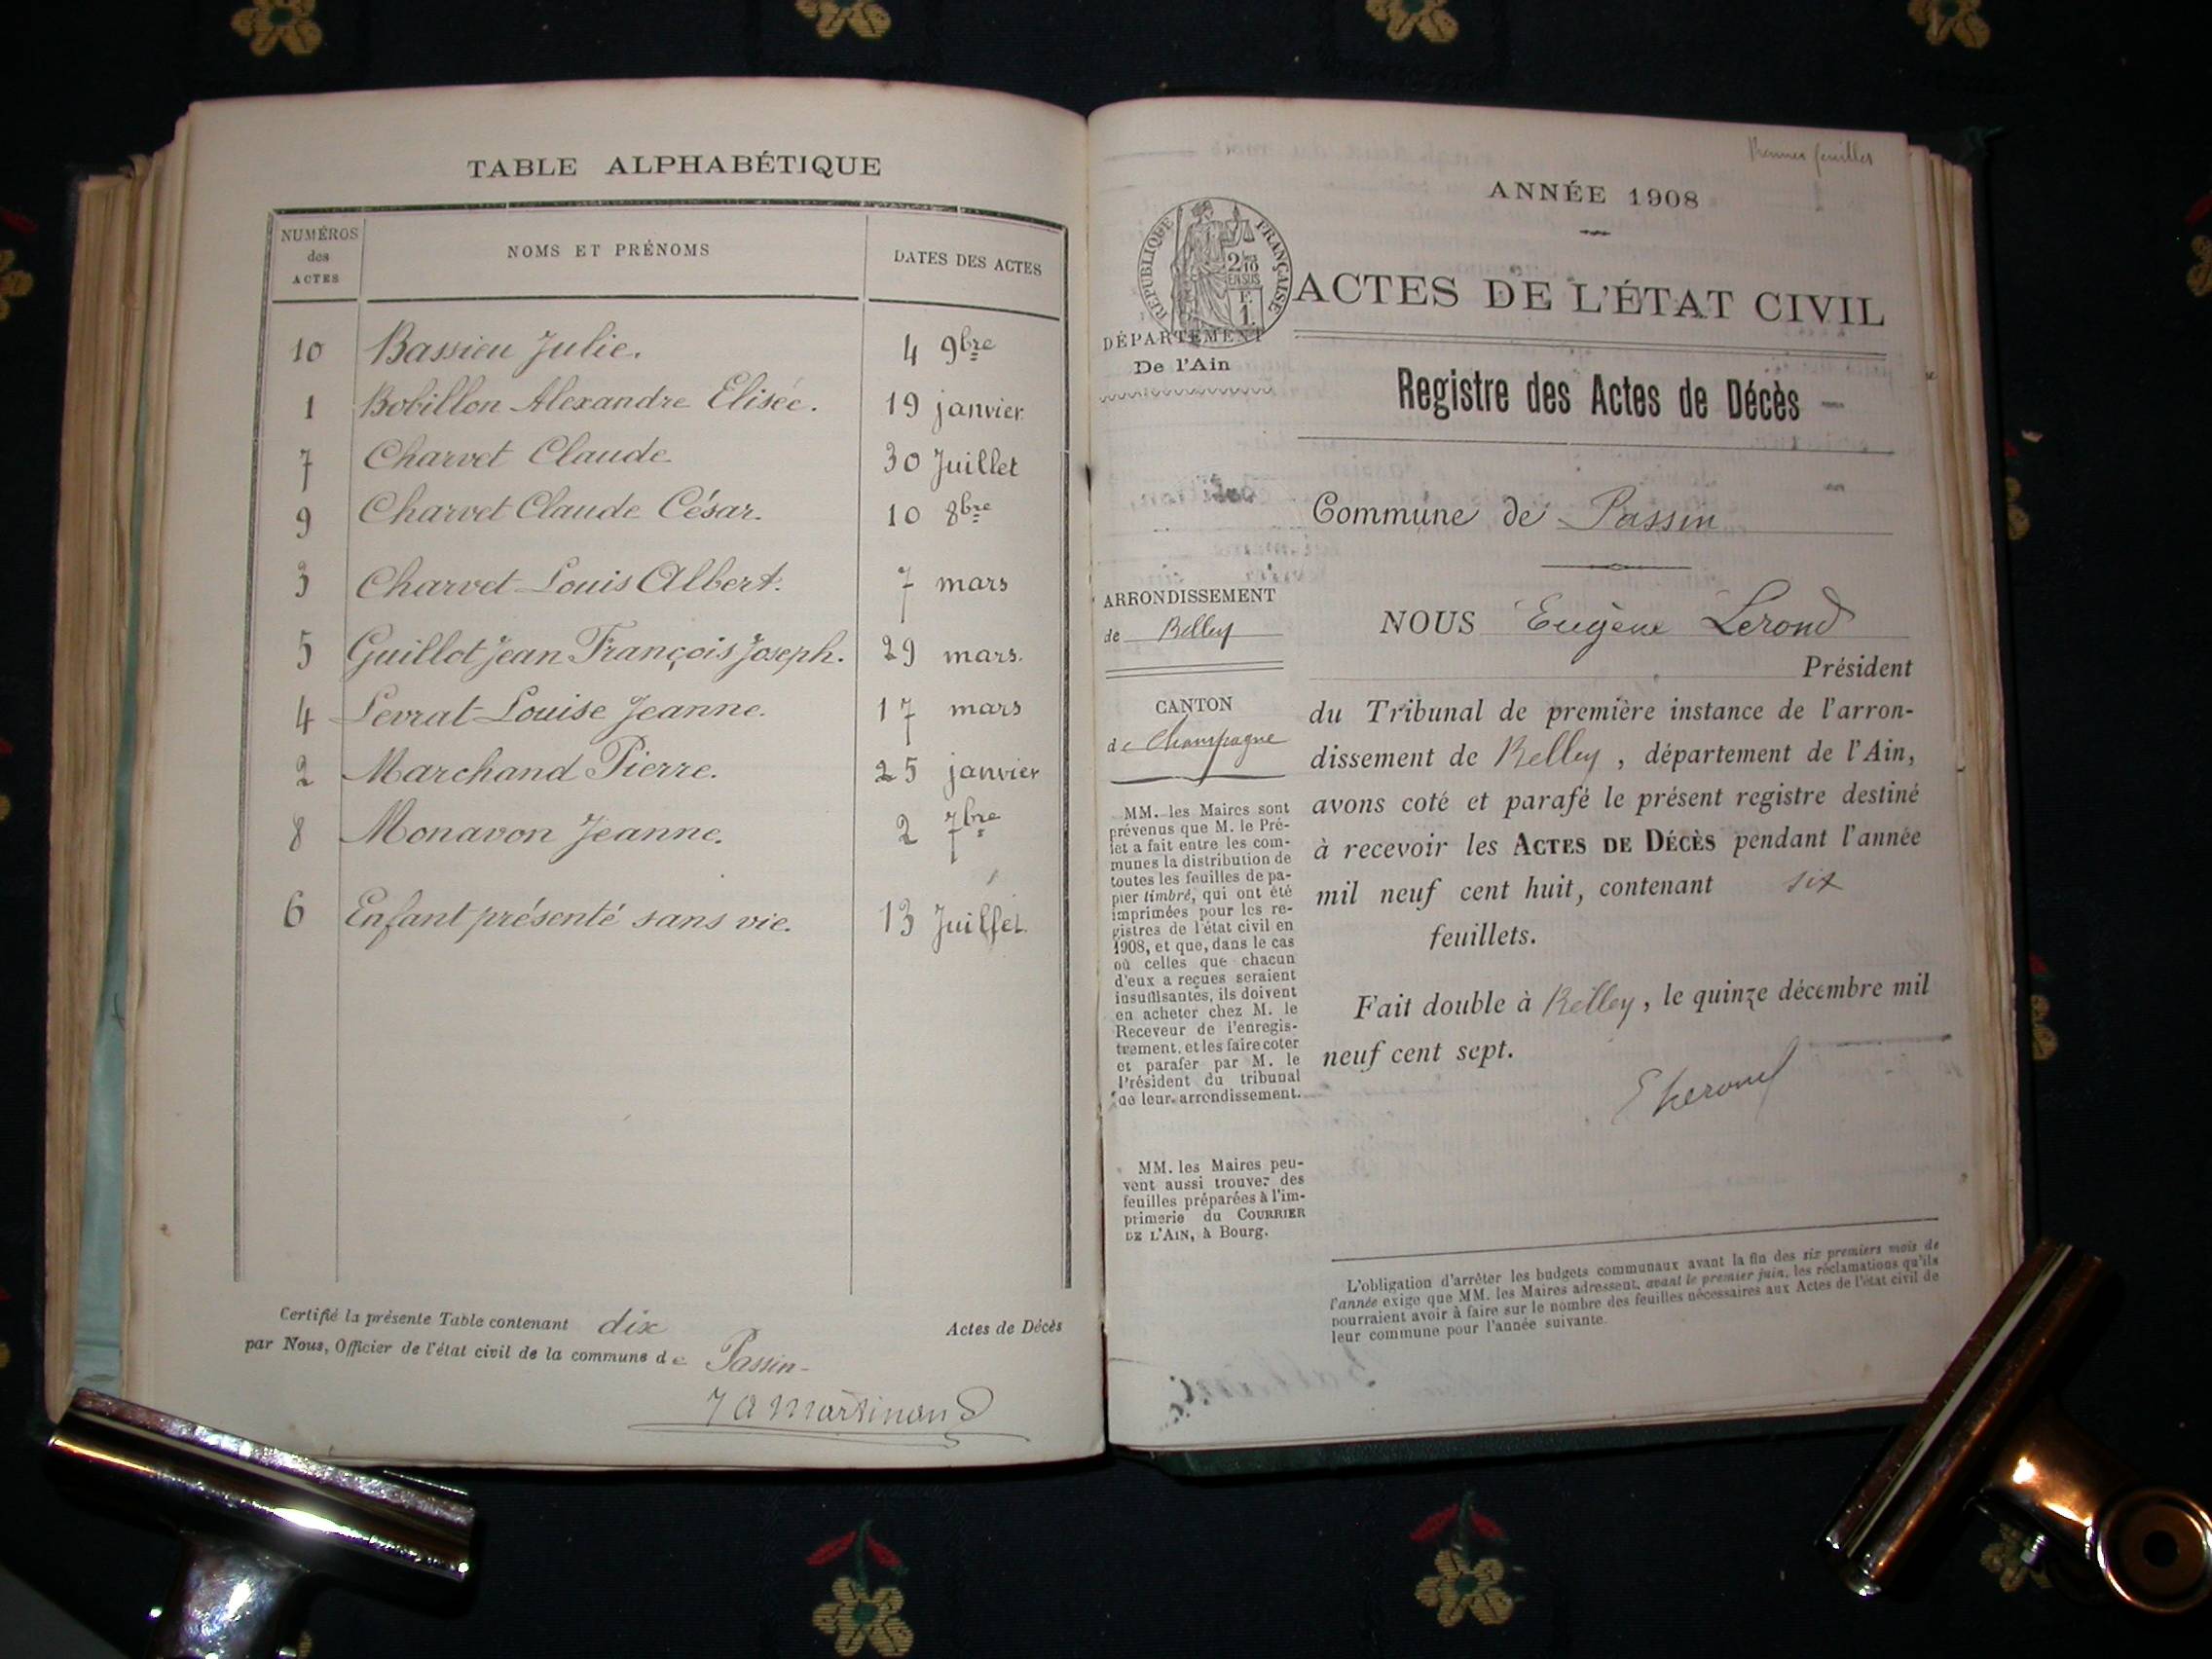 TABLE ALPHABÉTIQUE
NUMÉROS des ACTES NOMS ET PRÉNOMS DATES DES ACTES
10 Bassieu Julie. 4 9bre
1 Bobillon Alexandre Elisée. 19 janvier
7 Charvet Claude 30 Juillet
9 Charvet Claude César. 10 8bre
3 Charvet Louis Albert. 7 mars
5 Guillot Jean François Joseph. 29 mars.
4 Levrat Louise Jeanne. 17 mars
2 Marchand Pierre. 25 janvier
8 Monavon Jeanne. 2 7bre
6 Enfant présenté sans vie. 13 Juillet
Certifié la présente Table contenant dix Actes de Décès
par Nous, Officier de l'état civil de la commune de Passin
Martinand
feuilles
ANNÉE 1908
RÉPUBLIQUE FRANÇAISE
2/10 EN SUS
F. 1.
ACTES DE L'ÉTAT CIVIL
DÉPARTEMENT
De l'Ain
Registre des Actes de Décès
Commune de Passin
ARRONDISSEMENT
de Belley
CANTON
de Champagne
MM. les Maires sont
prévenus que M. le Pré-
fet a fait entre les com-
munes la distribution de
toutes les feuilles de pa-
pier timbré, qui ont été
imprimées pour les re-
gistres de l'état civil en
1908, et que, dans le cas
où celles que chacun
d'eux a reçues seraient
insuffisantes, ils doivent
en acheter chez M. le
Receveur de l'enregis-
trement, et les faire coter
et parafer par M. le
Président du tribunal
de leur arrondissement.
MM. les Maires peu-
vent aussi trouver des
feuilles préparées à l'im-
primerie du COURRIER
DE L'AIN, à Bourg.
NOUS Eugène Lerond
Président
du Tribunal de première instance de l'arron-
dissement de Belley, département de l'Ain,
avons coté et parafé le présent registre destiné
à recevoir les ACTES DE DÉCÈS pendant l'année
mil neuf cent huit, contenant six
feuillets.
Fait double à Belley, le quinze décembre mil
neuf cent sept.
E Lerond
L'obligation d'arrêter les budgets communaux avant la fin des six premiers mois de
l'année exige que MM. les Maires adressent, avant le premier juin, les réclamations qu'ils
pourraient avoir à faire sur le nombre des feuilles nécessaires aux Actes de l'état civil de
leur commune pour l'année suivante.